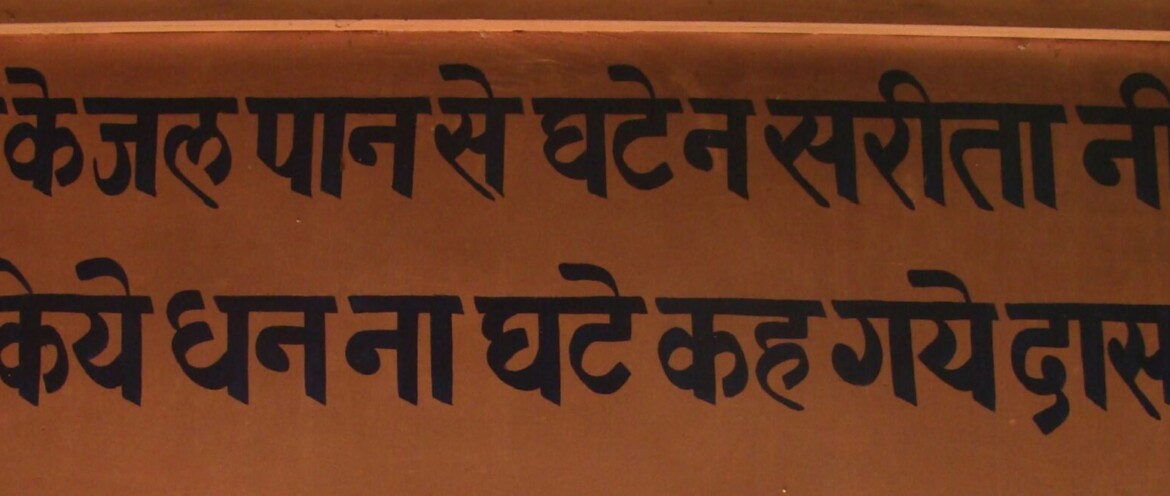 के जल पान से घटे न सरीता नी
किये धन ना घटे कह गये दास